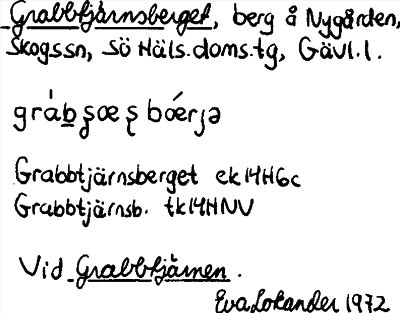 Grabbtjärnsberget, berg å Nygården,
Skogssn, Sö Häls.doms.tg, Gävl.l.
Grabbtjärnsberget ek14H6c
Grabbtjärnsb. tk14HNV
Vid Grabbtjärnen.
Eva Lokander 1972